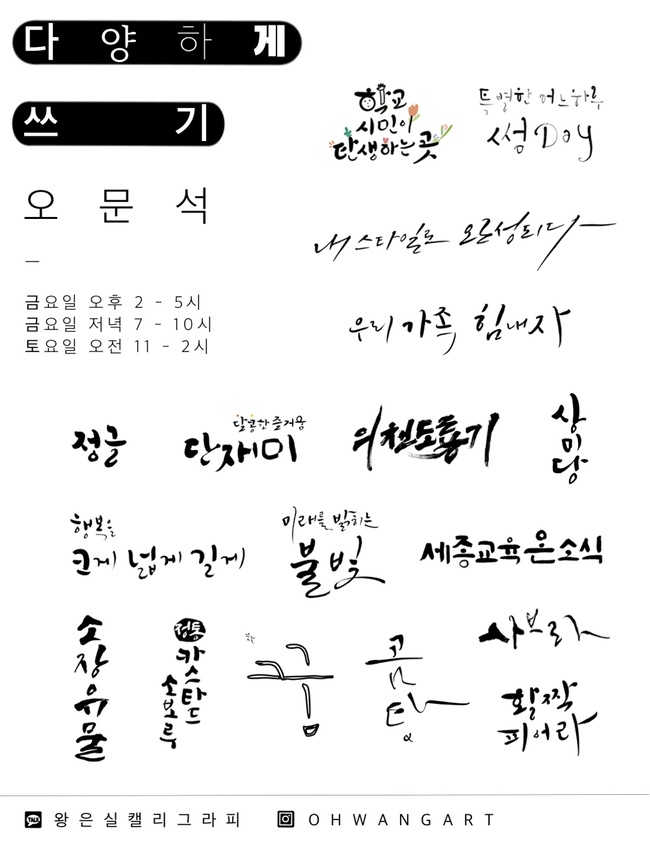 다양하게
쓰기
오문석
–
금요일 오후 2 - 5시
금요일 저녁 7 - 10시
토요일 오전 11 - 2시
학교
시민이
탄생하는 곳
특별한 어느하루
썸 Day
내 스타일로 완성되다
우리 가족 힘내자
정글
달콤한 즐거움
단재미
의천도룡기
상미당
행복을
크게 넓게 길게
미래를 밝히는
불빛
세종교육 온소식
소장유물
정통
카스타드
소보루
꿈
사브라
활짝
피어라
TALK 왕은실캘리그라피
OHWANGART